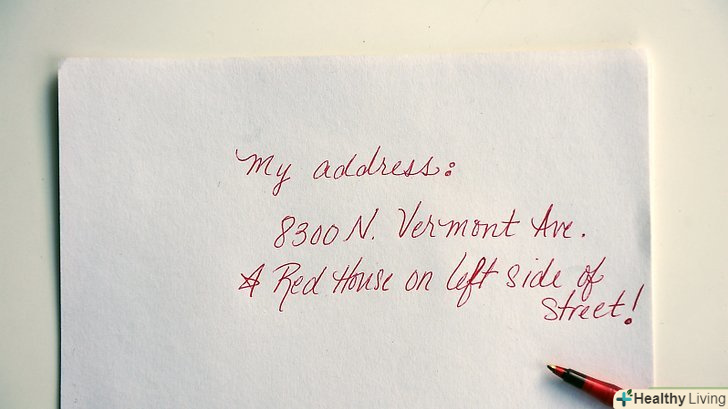 My address:
8300 N. Vermont Ave.
* Red House on left side of
street!
Healthy Living